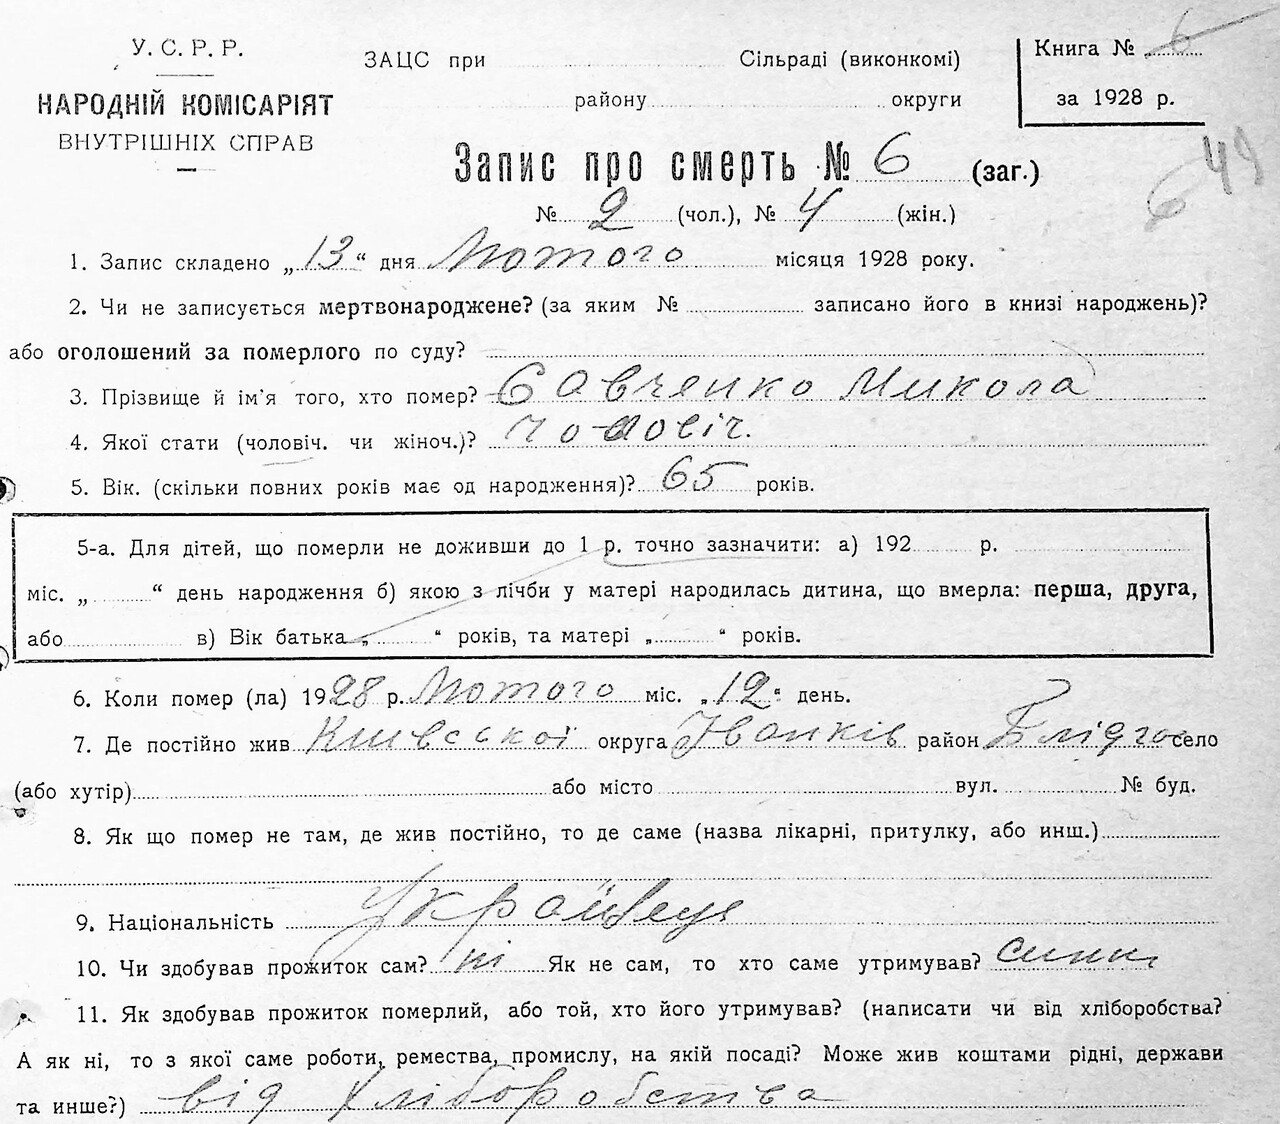 У. С. Р. Р.
НАРОДНІЙ КОМІСАРІЯТ
ВНУТРІШНІХ СПРАВ
ЗАЦС при Сільраді (виконкомі)
району округи
Книга № 6
за 1928 р.
Запис про смерть № 6 (заг.)
6 49
№ 2 (чол.), № 4 (жін.)
1. Запис складено „13“ дня Лютого місяця 1928 року.
2. Чи не записується мертвонароджене? (за яким № записано його в книзі народжень)?
або оголошений за померлого по суду?
3. Прізвище й ім'я того, хто помер? Савченко Микола
4. Якої стати (чоловіч. чи жіноч.)? чоловіч.
5. Вік. (скільки повних років має од народження)? 65 років.
5-а. Для дітей, що померли не доживши до 1 р. точно зазначити: а) 192 р.
міс. „ “ день народження б) якою з лічби у матері народилась дитина, що вмерла: перша, друга,
або в) Вік батька „ “ років, та матері „ “ років.
6. Коли помер (ла) 1928 р. Лютого міс. „12“ день.
7. Де постійно жив Київської округа Іванків район село
(або хутір) або місто вул. № буд.
8. Як що помер не там, де жив постійно, то де саме (назва лікарні, притулку, або инш.)
9. Національність Українець
10. Чи здобував прожиток сам? ні Як не сам, то хто саме утримував? сини
11. Як здобував прожиток померлий, або той, хто його утримував? (написати чи від хліборобства?
А як ні, то з якої саме роботи, ремества, промислу, на якій посаді? Може жив коштами рідні, держави
та инше?) від хліборобства